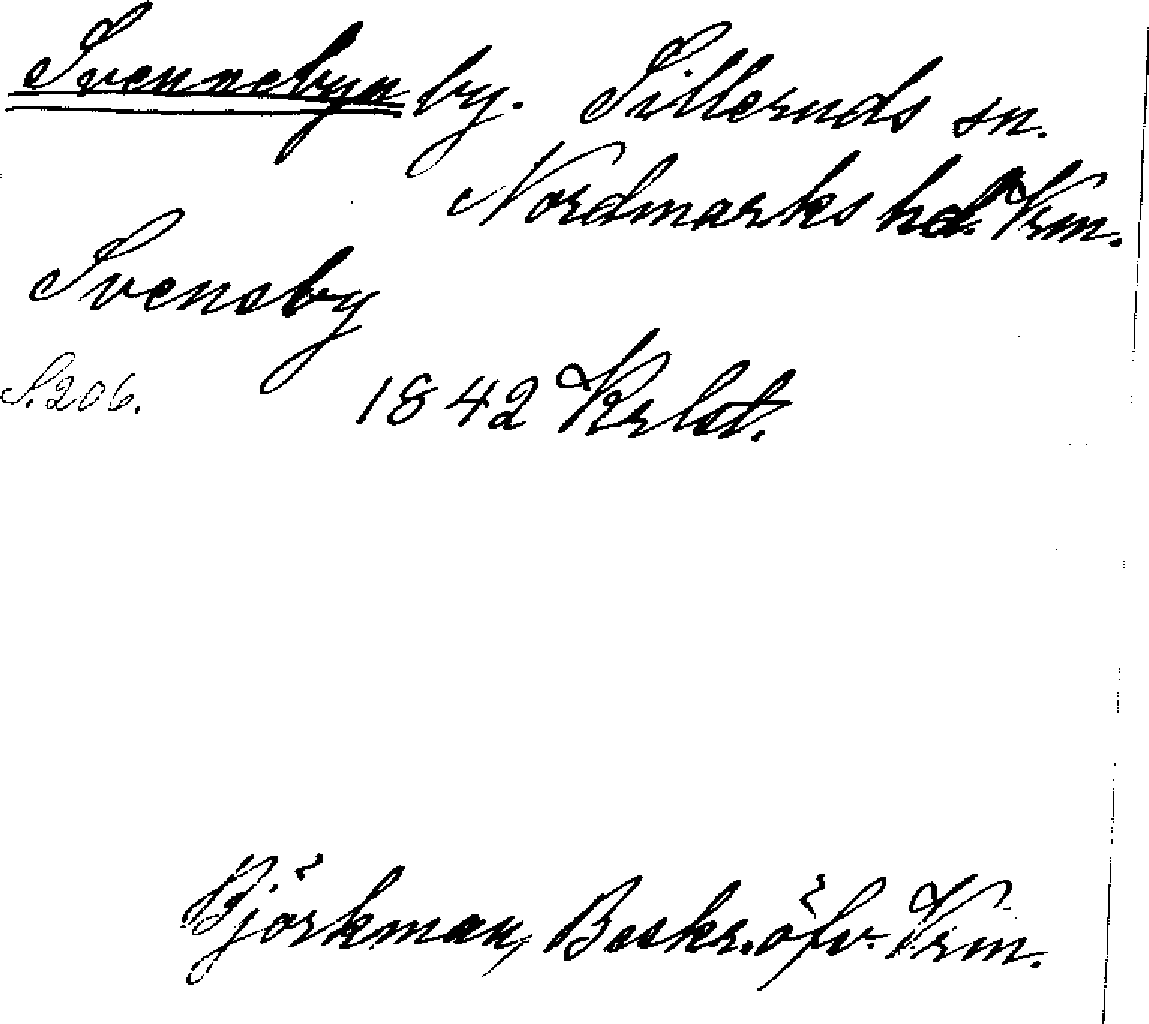 Svennebyn by. Silleruds sn.
Nordmarks hd. Vrm.
Svensby
S. 206. 1842 Krlst.
Björkman, Beskr. öfv. Vrm.